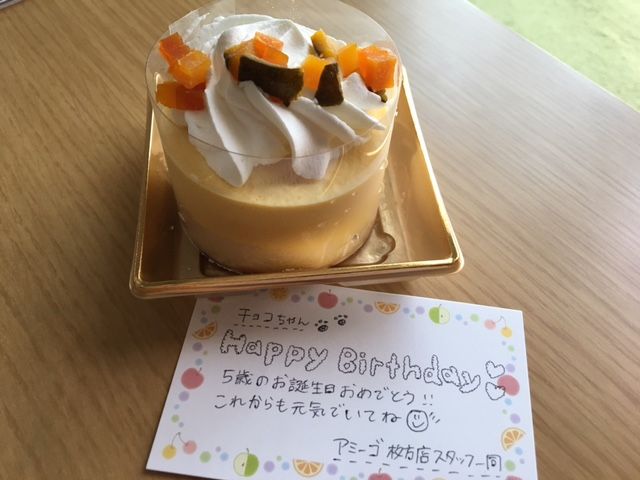 チョコちゃん
Happy Birthday
5歳のお誕生日おめでとう!!
これからも元気でいてね
アミーゴ 枚方店スタッフ一同